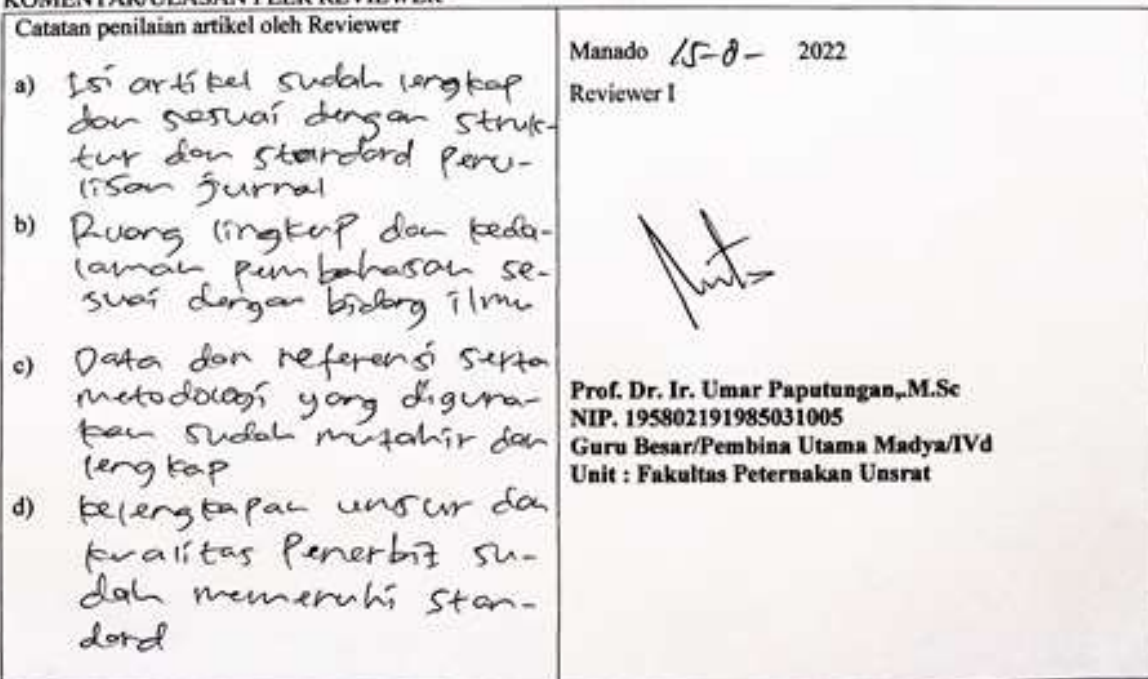 KOMENTAR/ULASAN PEER REVIEWER
Catatan penilaian artikel oleh Reviewer
a) Isi artikel sudah lengkap
dan sesuai dengan struk-
tur dan standard penu-
lisan jurnal
b) Ruang lingkup dan keda-
laman pembahasan se-
suai dengan bidang ilmu
c) Data dan referensi serta
metodologi yang diguna-
kan sudah mutahir dan
lengkap
d) kelengkapan unsur dan
kualitas Penerbit su-
dah memenuhi stan-
dard
Manado 15-8- 2022
Reviewer I
Prof. Dr. Ir. Umar Paputungan,.M.Sc
NIP. 195802191985031005
Guru Besar/Pembina Utama Madya/IVd
Unit : Fakultas Peternakan Unsrat